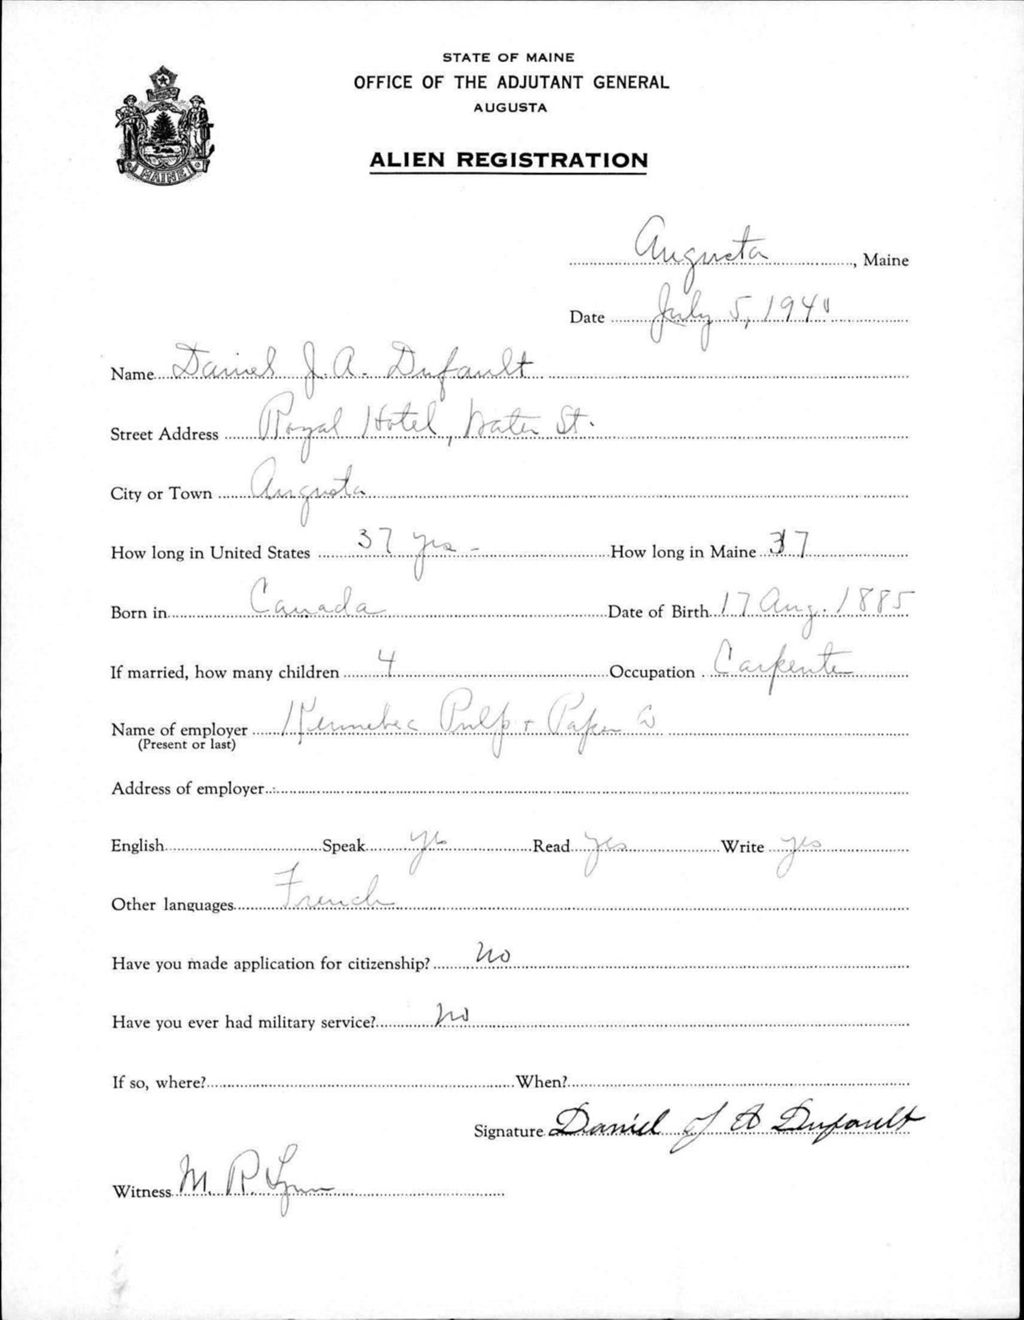 STATE OF MAINE
OFFICE OF THE ADJUTANT GENERAL
AUGUSTA
ALIEN REGISTRATION
MAINE
Augusta, Maine
Date July 5, 1940
Name Daniel J. A. Dufault
Street Address Royal Hotel, Water St.
City or Town Augusta
How long in United States 37 yrs - How long in Maine 37
Born in Canada Date of Birth 17 Aug. 1885
If married, how many children 4 Occupation Carpenter
Name of employer Kennebec Pulp + Paper Co
(Present or last)
Address of employer
English Speak yes Read yes Write yes
Other languages French
Have you made application for citizenship? No
Have you ever had military service? No
If so, where? When?
Signature Daniel J A Dufault
Witness M. R. Lynn